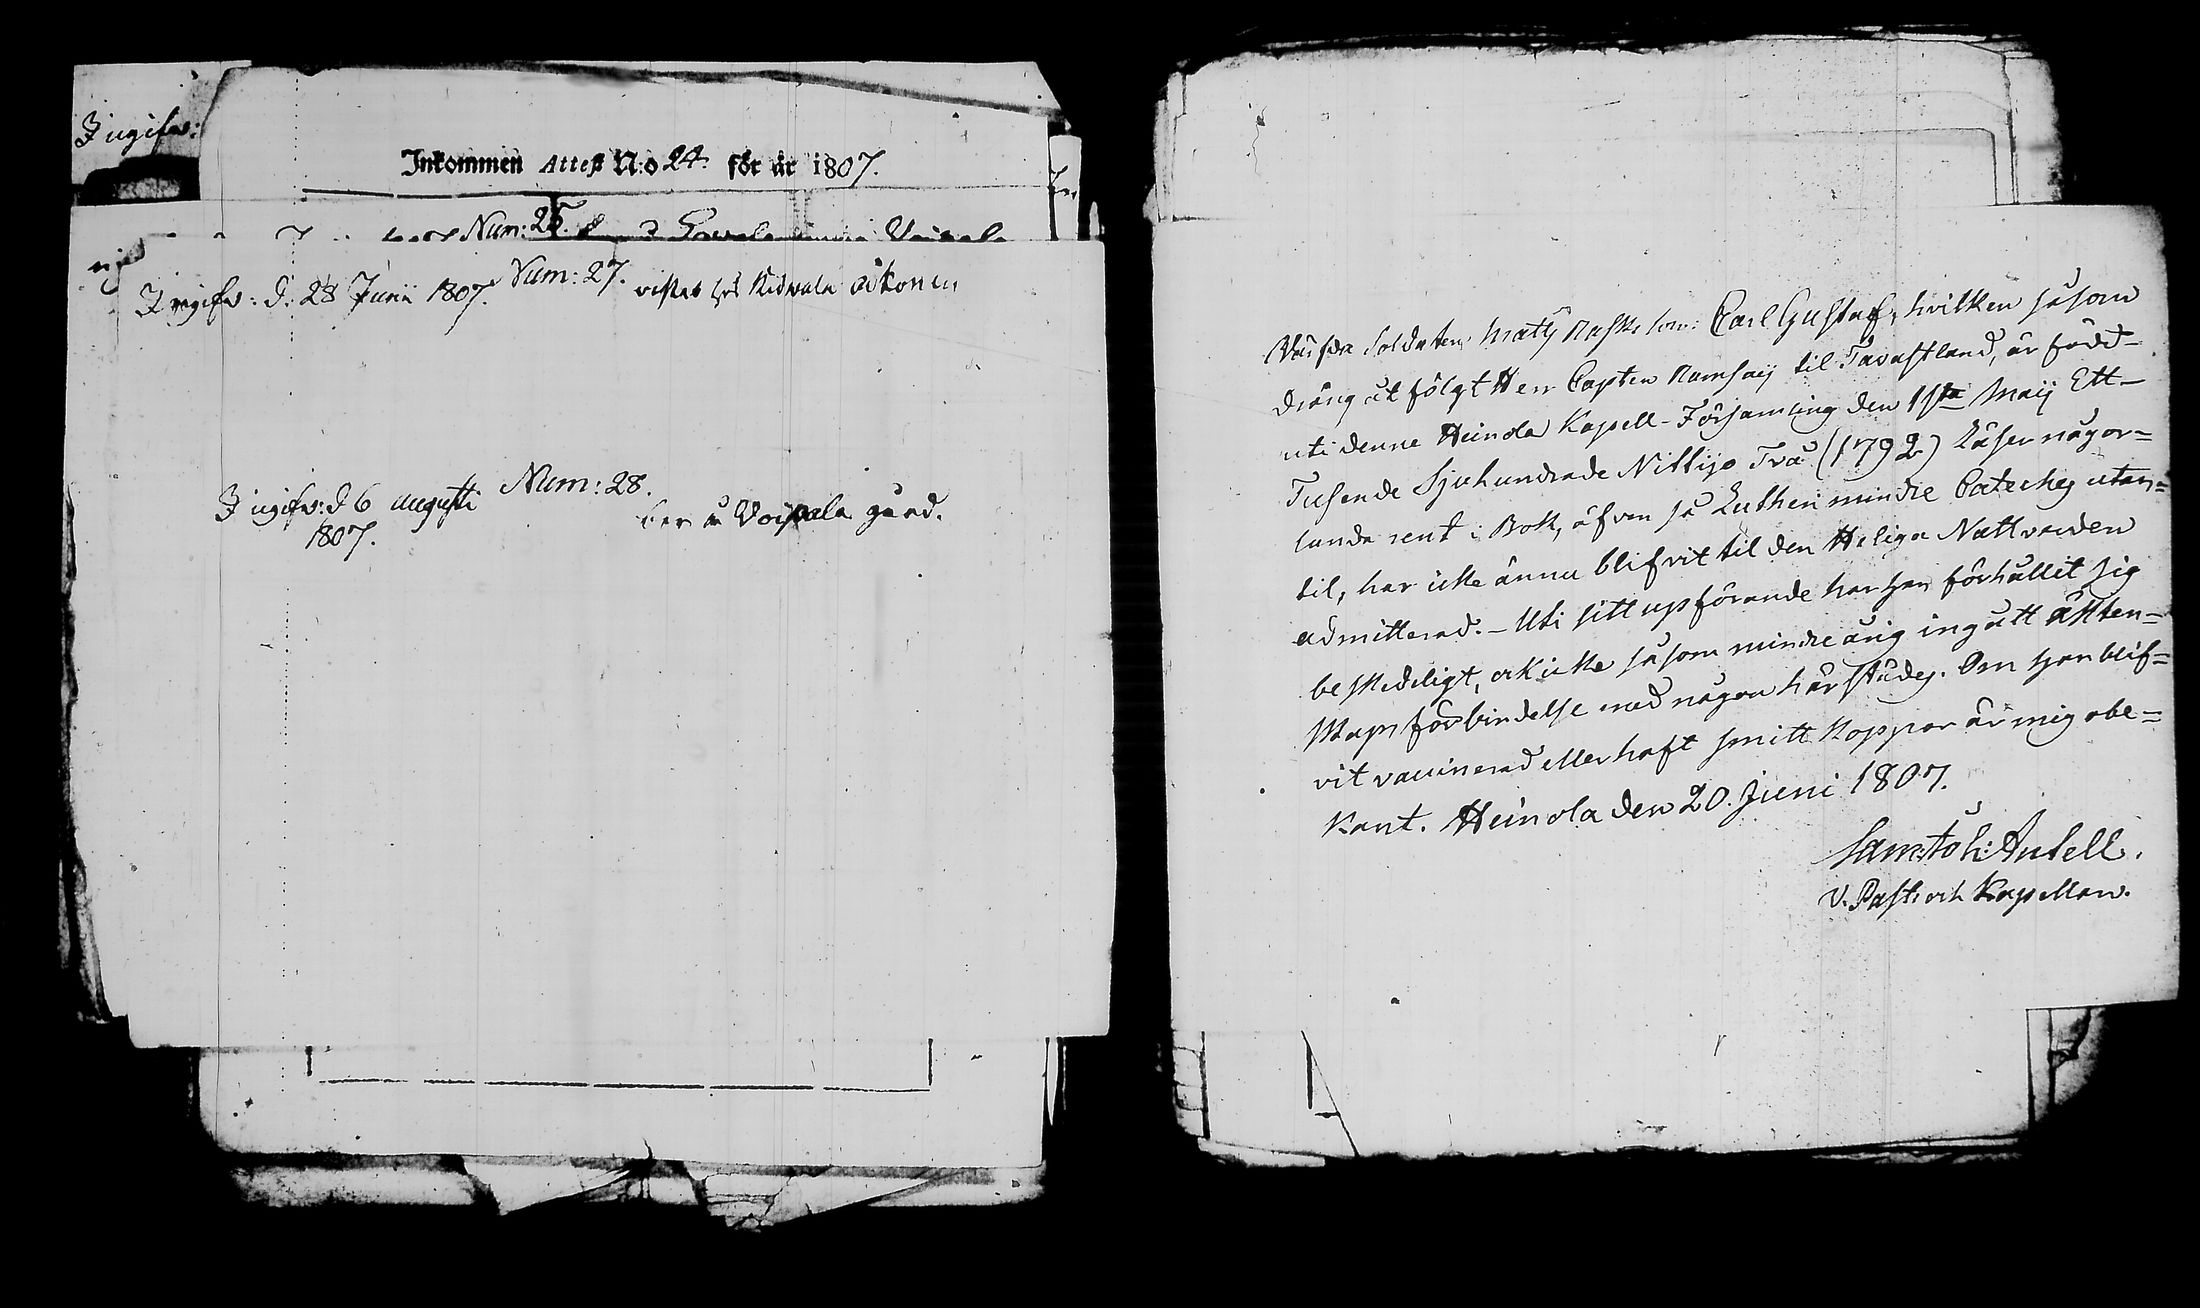 Ingifv:
Inkommen Attest N:o 24. för år 1807.
Num: 25.
Ingifv: d. 28 Junii 1807. Num: 27. vistas hos Kidwala
Ingifv: d 6 augusti Num: 28.
1807. Voipala gård.
Värfda Soldaten Matts Rasks son: Carl Gustaf, hvilken såsom
dräng åtfölgt Herr Capten Ramsaij til Tavastland, är född
uti denne Heinola Kapell-Församling den 1sta Maij Ett-
Tusende Sjuhundrade Nittijo Två (1792) Läser någor=
lunda rent i Bok, äfven så Lutheri mindre Cateches utan=
til, har icke ännu blifvit til den Heliga Nattvarden
admitterad. – Uti sitt upförande har han förhållit sig
beskedeligt, ock icke såsom minderårig ingått äkten=
skaps förbindelse med någon härstädes. Om han blif=
vit vaccinerad eller haft smitt koppor är mig obe=
kant. Heinola den 20. Juni 1807.
Sam: Joh: Antell.
V. Past: och Kapellan.